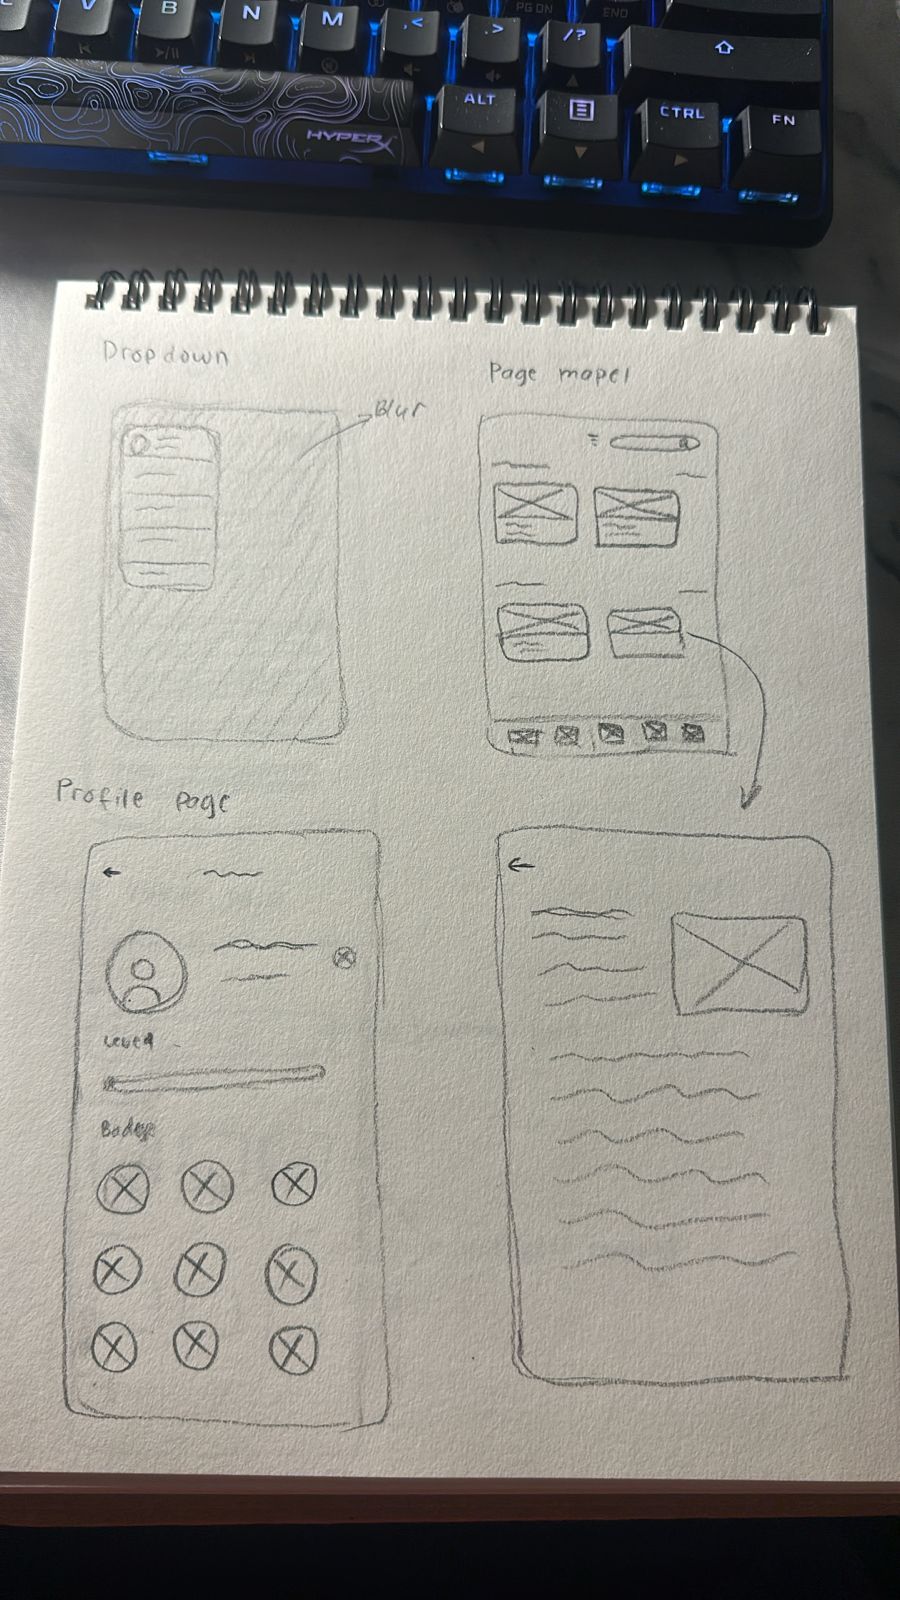 V B N M ,< .> /?
PG DN END
HYPERX ALT CTRL FN
Dropdown
Blur
Page mapel
Profile page
Level
Badge